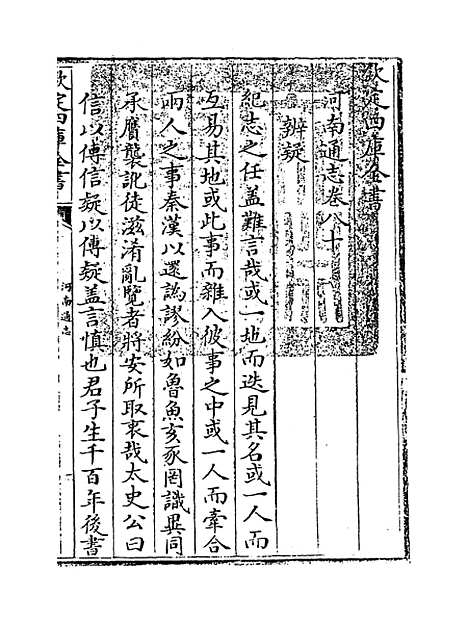 欽定四庫全書
河南通志卷八十
辨疑
紀志之任盖難言哉或一地而迭見其名或一人而
互易其地或此事而雜入彼事之中或一人而牽合
兩人之事秦漢以還譌謬紛如魯魚亥豕罔識異同
承贗襲訛徒滋淆亂覽者將安所取衷哉太史公曰
信以傳信疑以傳疑盖言慎也君子生千百年後書
欽定四庫全書
河南通志